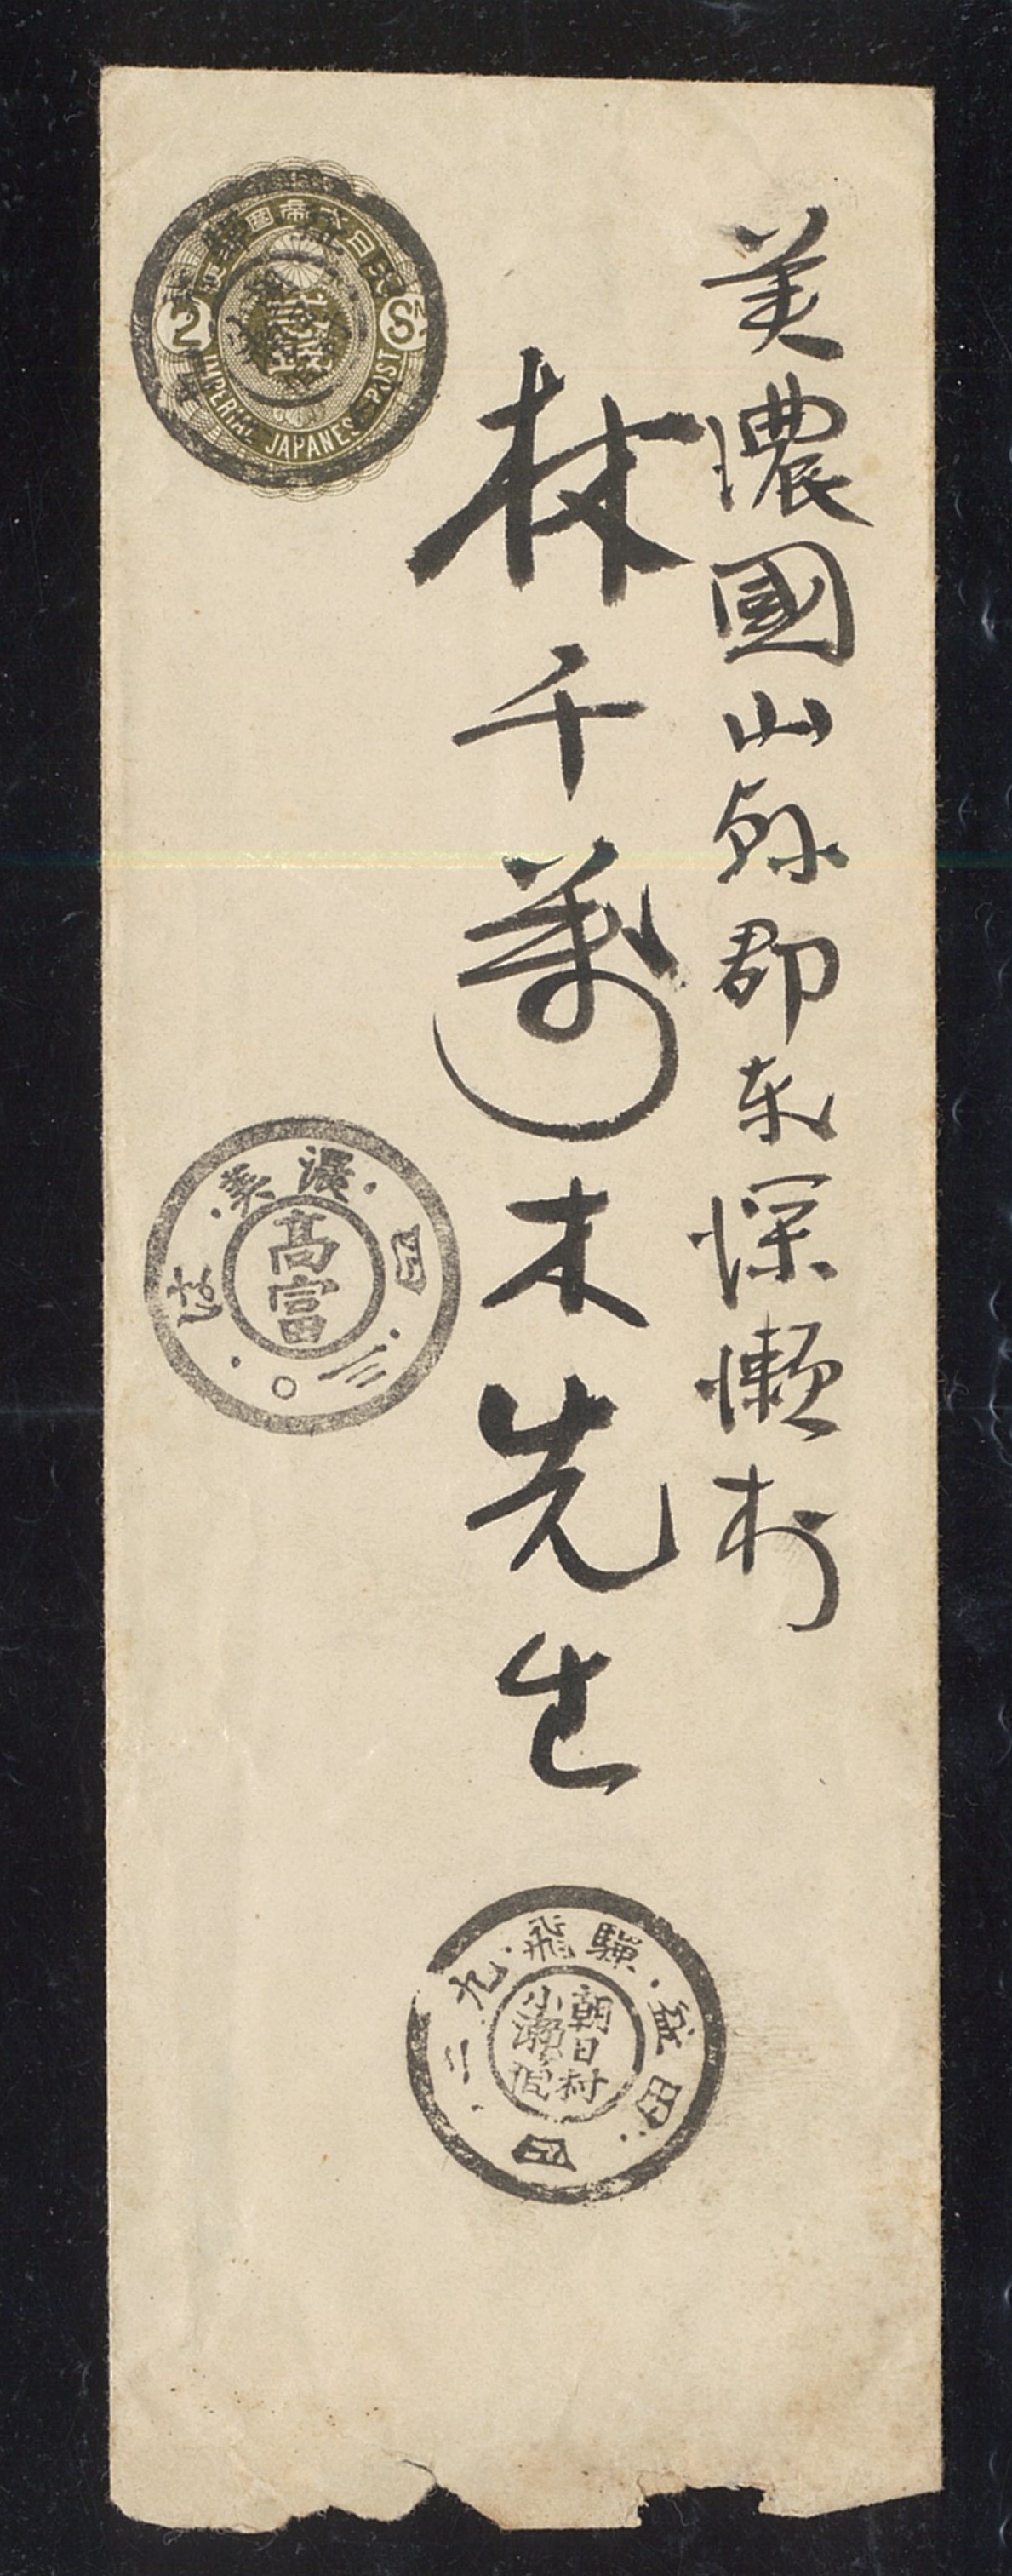 美濃國山縣郡東深瀬村
林千萬木先生
大日本帝國郵便
2 SN
貳錢
IMPERIAL JAPANESE POST
美濃
高富
四
三〇
飛騨
益田
朝日村
小瀬
四
二九